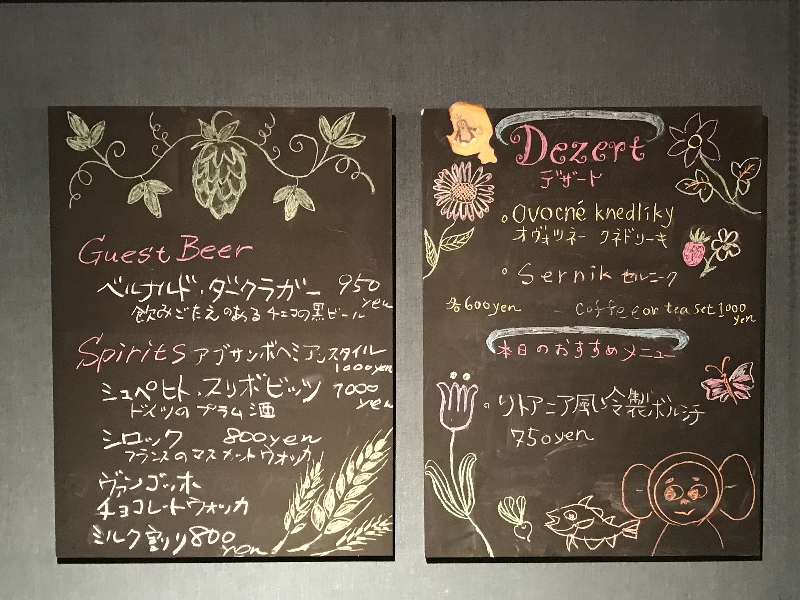 Guest Beer
ベルナルド・ダークラガー 950 yen
飲みごたえのある チェコの黒ビール
Spirits アブサンボヘミアンスタイル 1000yen
シュペヒト・スリボビッツ 1000 yen
ドイツのプラム酒
シロック 800yen
フランスのマスカットウォッカ
ヴァンゴッホ
チョコレートウォッカ
ミルク割り800 yen
Dezert
デザート
Ovocné knedlíky
オヴォツネー クネドリーキ
Sernik セルニーク
各600yen - Coffee or tea set 1000 yen
本日のおすすめメニュー
リトアニア風冷製ボルシチ
750yen